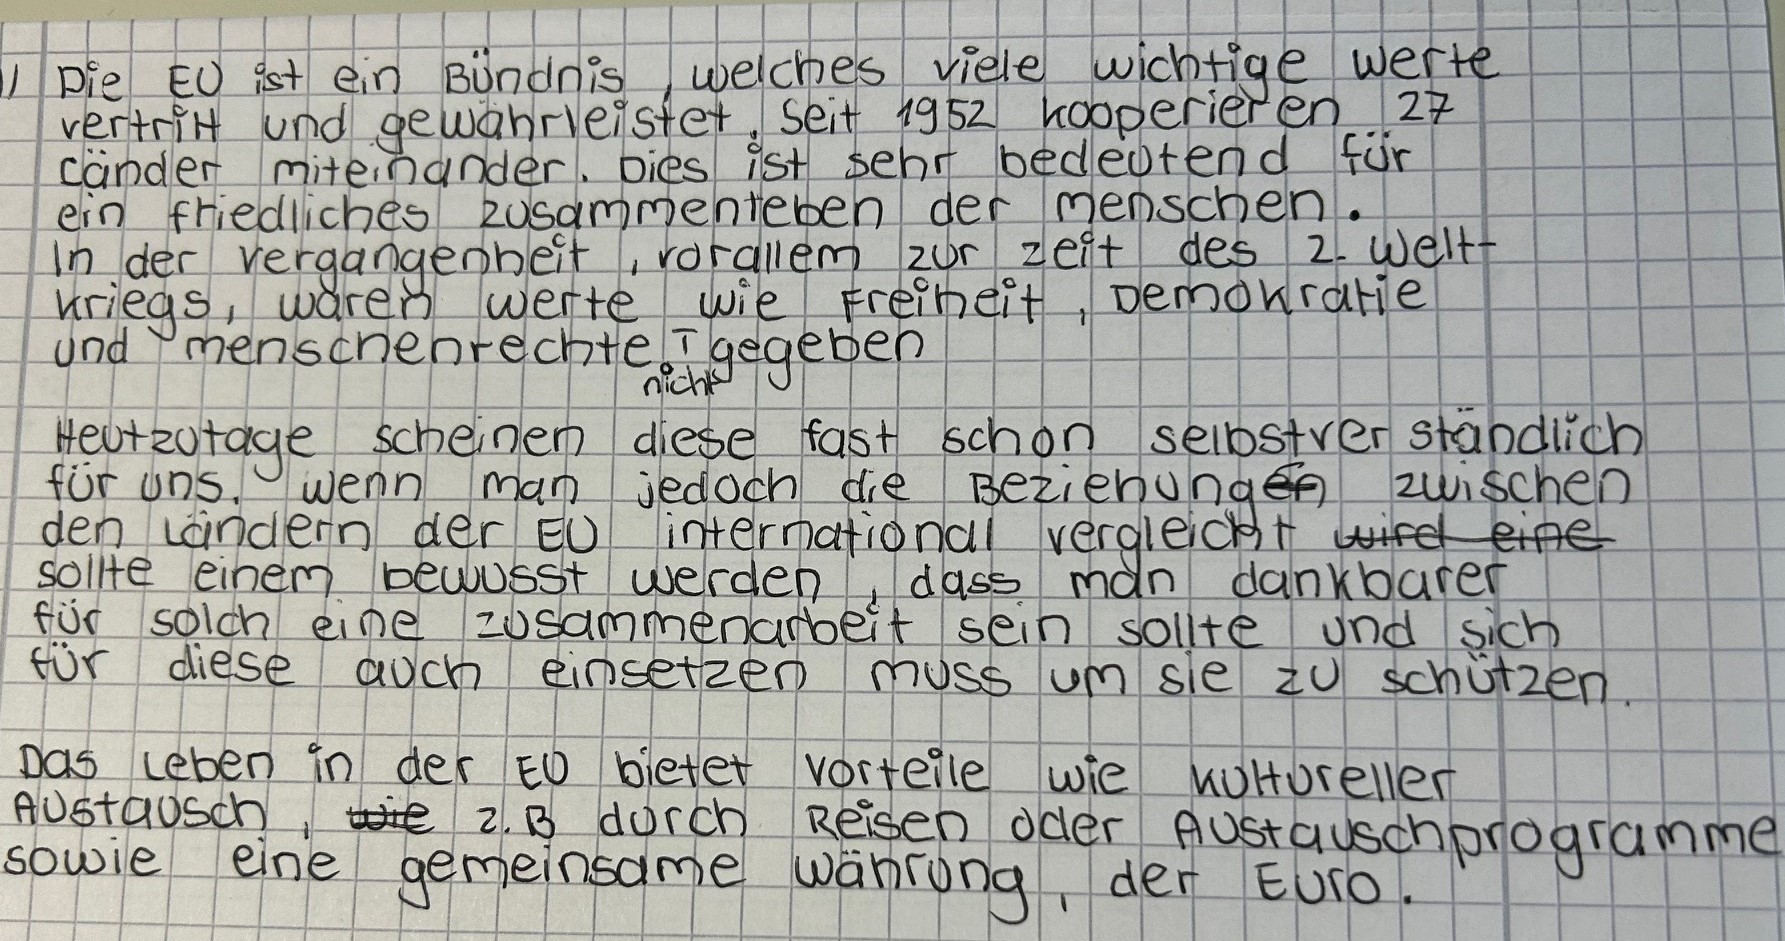 1) Die EU ist ein Bündnis, welches viele wichtige Werte
vertritt und gewährleistet. Seit 1952 kooperieren 27
Länder miteinander. Dies ist sehr bedeutend für
ein friedliches Zusammenleben der Menschen.
In der Vergangenheit, vorallem zur Zeit des 2. Welt-
kriegs, waren Werte wie Freiheit, Demokratie
und Menschenrechte nicht gegeben
Heutzutage scheinen diese fast schon selbstverständlich
für uns. Wenn man jedoch die Beziehung zwischen
den Ländern der EU international vergleicht wird eine
sollte einem bewusst werden, dass man dankbarer
für solch eine Zusammenarbeit sein sollte und sich
für diese auch einsetzen muss um sie zu schützen.
Das Leben in der EU bietet Vorteile wie kultureller
Austausch, wie z.B durch Reisen oder Austauschprogramme
sowie eine gemeinsame Währung, der Euro.